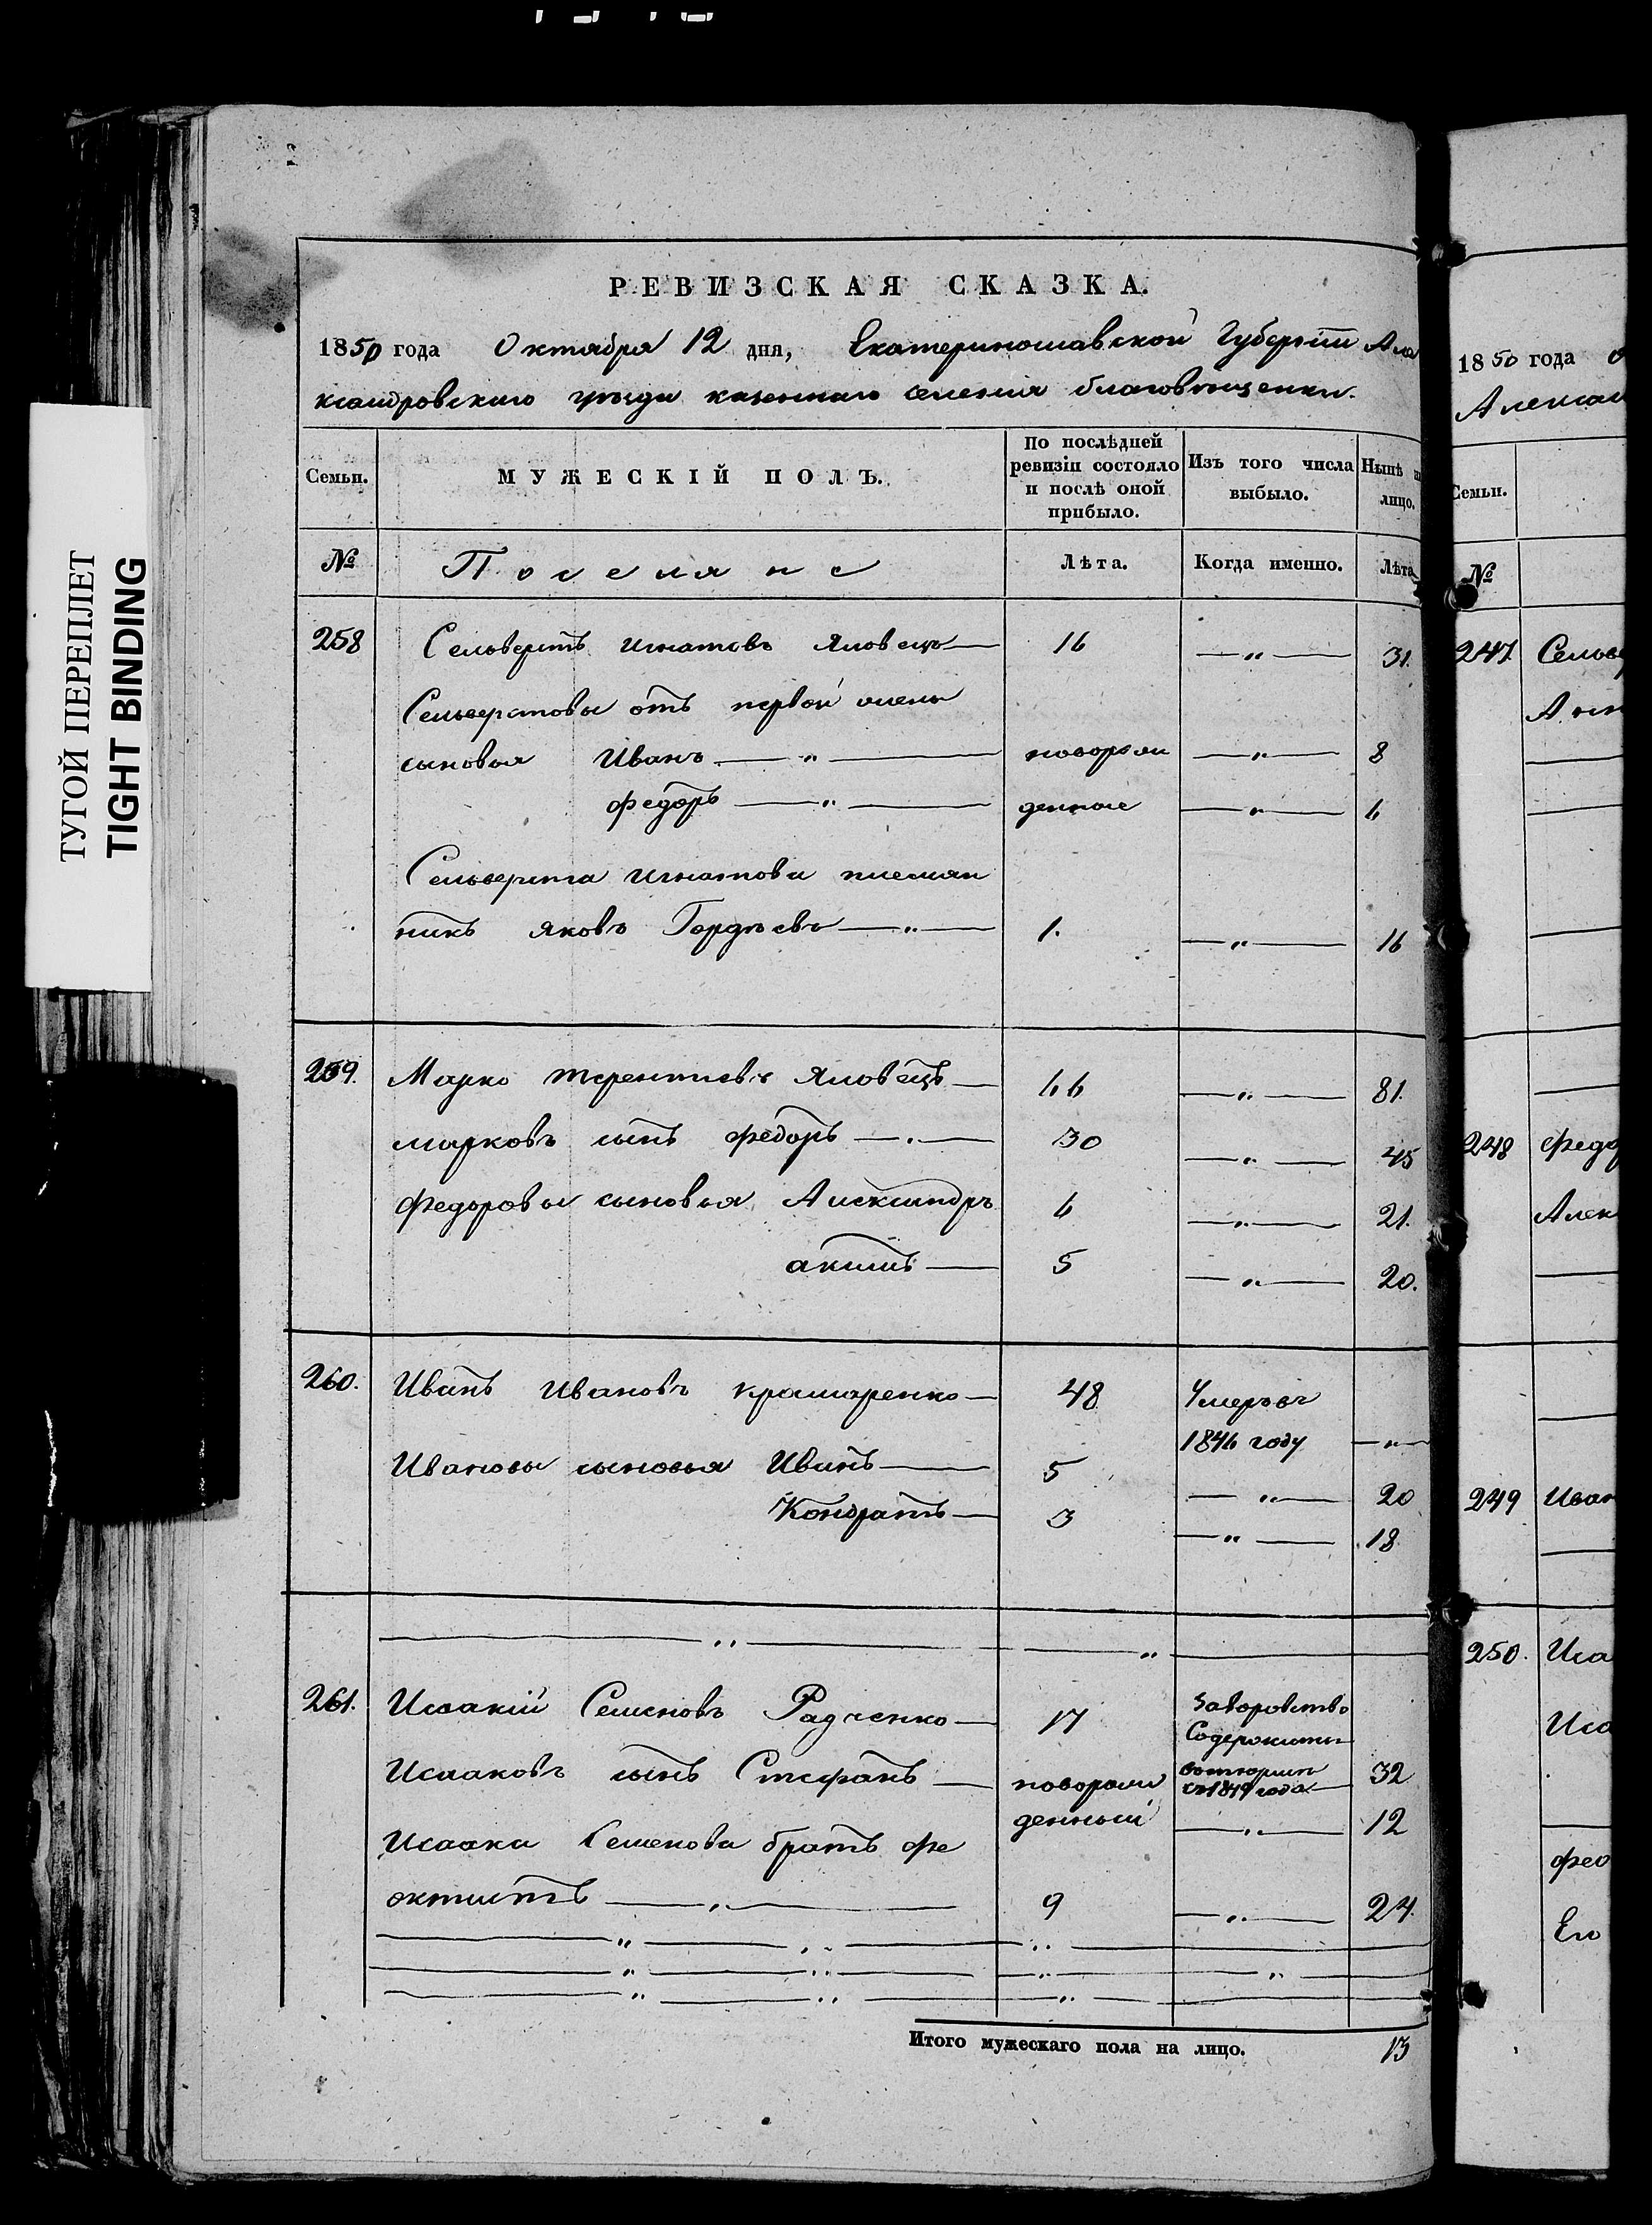 ТУГОЙ ПЕРЕПЛЕТ
TIGHT BINDING
РЕВИЗСКАЯ СКАЗКА.
1850 года Октября 12 дня, Екатеринославской Губернии Але
ксандровского уезда казенного селения Благовещенки.
Семьи. МУЖЕСКІЙ ПОЛЪ. По послѣдней ревизіи состояло и послѣ оной прибыло. Изъ того числа выбыло. Нынѣ на лицо.
№ Поселяне Лѣта. Когда именно. Лѣта
258 Сельверстъ Игнатовъ Яловецъ — 16 — „ — 31.
Сельверстовы отъ первой жены
сыновья Иванъ — „ — новорож — „ — 8
Федоръ — „ — денные — „ — 6
Сельверста Игнатова племян
никъ Яковъ Гордѣевъ — „ — 1. — „ — 16
259. Марко Терентиевъ Яловецъ — 66 — „ — 81.
Марковъ сынъ Федоръ — „ — 30 — „ — 45
Федоровы сыновья Александръ 6 — „ — 21.
Акимъ — 5 — „ — 20.
260. Иванъ Ивановъ Крамаренко — 48 Умеръ въ
1846 году — „ —
Ивановы сыновья Иванъ — 5 — „ — 20
Кондратъ — 3 — „ — 18
261. Исаакій Семеновъ Радченко — 17 За воровство
Содержитъ
с 1849 года — 32
Исааковъ сынъ Стефанъ — новорож
денный — „ — 12
Исаака Семенова братъ Фе
октистъ — „ — 9 — „ — 24.
Итого мужескаго пола на лицо. 13
1850 года О
Алексан
Семьи.
№
247. Сельве
Анн
248 Федо
Алек
249 Иван
250. Иса
Иса
Фео
Его